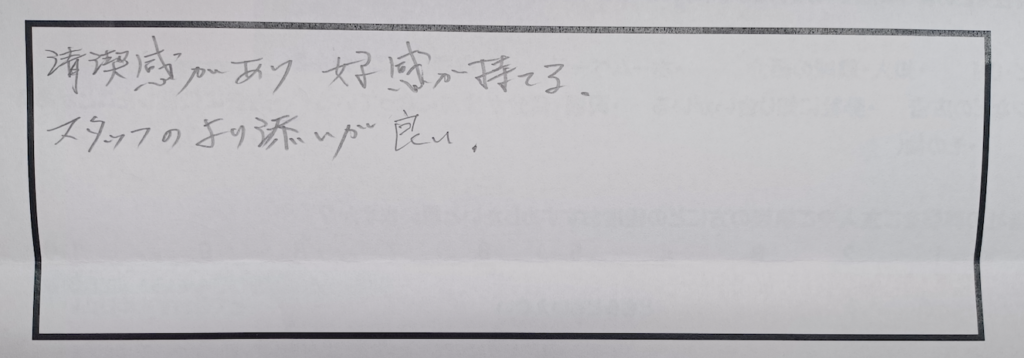 清潔感があり 好感が持てる.
スタッフのより添いが 良い.